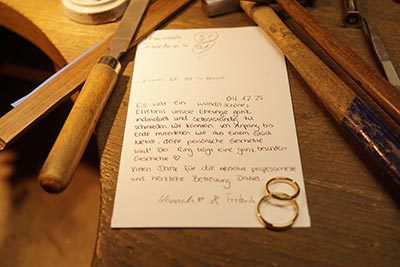 04.12.22
Es war ein wunderschönes
Erlebnis unsere Eheringe ganz
individuell und selbstständig zu
schmieden. Wir konnten von Anfang bis
Ende miterleben wie aus einem Stück
Metall, deine persönliche Geschichte
wird! Der Ring trägt eine ganz besondere
Geschichte ♡
Vielen Dank für die absolut professionelle
und herzliche Betreuung Daniel.
Hannah ♡ &